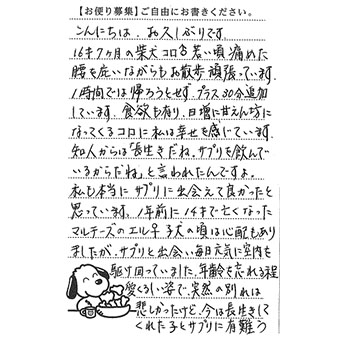 【お便り募集】ご自由にお書きください。
こんにちは、お久しぶりです。
16才7ヶ月の柴犬コロ 若い頃痛めた
腰を庇いながらもお散歩頑張っています。
1時間では帰ろうとせず、プラス30分追加
しています。食欲も有り、日増に甘えん坊に
なってくるコロに私は幸せを感じています。
知人からは「長生きだね。サプリを飲んで
いるからだね」と言われたんですよ。
私も本当にサプリに出会えて良かったと
思っています。1年前に14才で亡くなった
マルチーズのエル 子犬の頃は心配もあり
ましたが、サプリと出会い毎日元気に室内を
駆け回っていました。年齢を忘れる程
愛くるしい姿で、突然の別れは
悲しかったけど、今は長生きして
くれた子とサプリに有難う